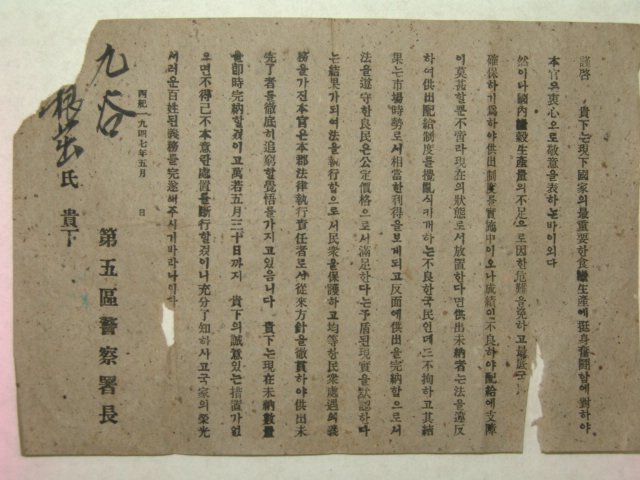 謹啓 貴下는現下國家의最重要한食糧生產에挺身奮鬪함에對하야
本官은衷心으로敬意을表하는바이외다
然이나國內糧穀生產量의不足으로因한危難을免하고最低
確保하기爲하야供出制度를實施中이오나成績이不良하야配給에支障
이莫甚할뿐不啻라現在의狀態로서放置한다면供出未納者는法을違反
하여供出配給制度를攪亂식키개하는不良한国民인데도不拘하고其結
果는市場時勢로서相當한利得을보게되고反面에供出을完納함으로서
法을遵守한良民은公定價格으로서滿足한다는矛盾된現實을默認한다
는結果가되여法을執行함으로서民衆을保護하고均等한民衆處遇의義
務를가진本官은本郡法律執行責任者로서從來方針을徹貫하야供出未
完了者를徹底히追窮할覺悟를가지고있음니다 貴下는現在未納數量
을卽時完納할것이고萬若五月三十日까지 貴下의誠意있는措置가없
으면不得已不本意한處置를斷行할것이니充分了知하사고國家의榮光
서러운百姓된義務를完遂해주시기바라나이다
西紀一九四七年五月 日
第五區警察署長
九谷
氏 貴下